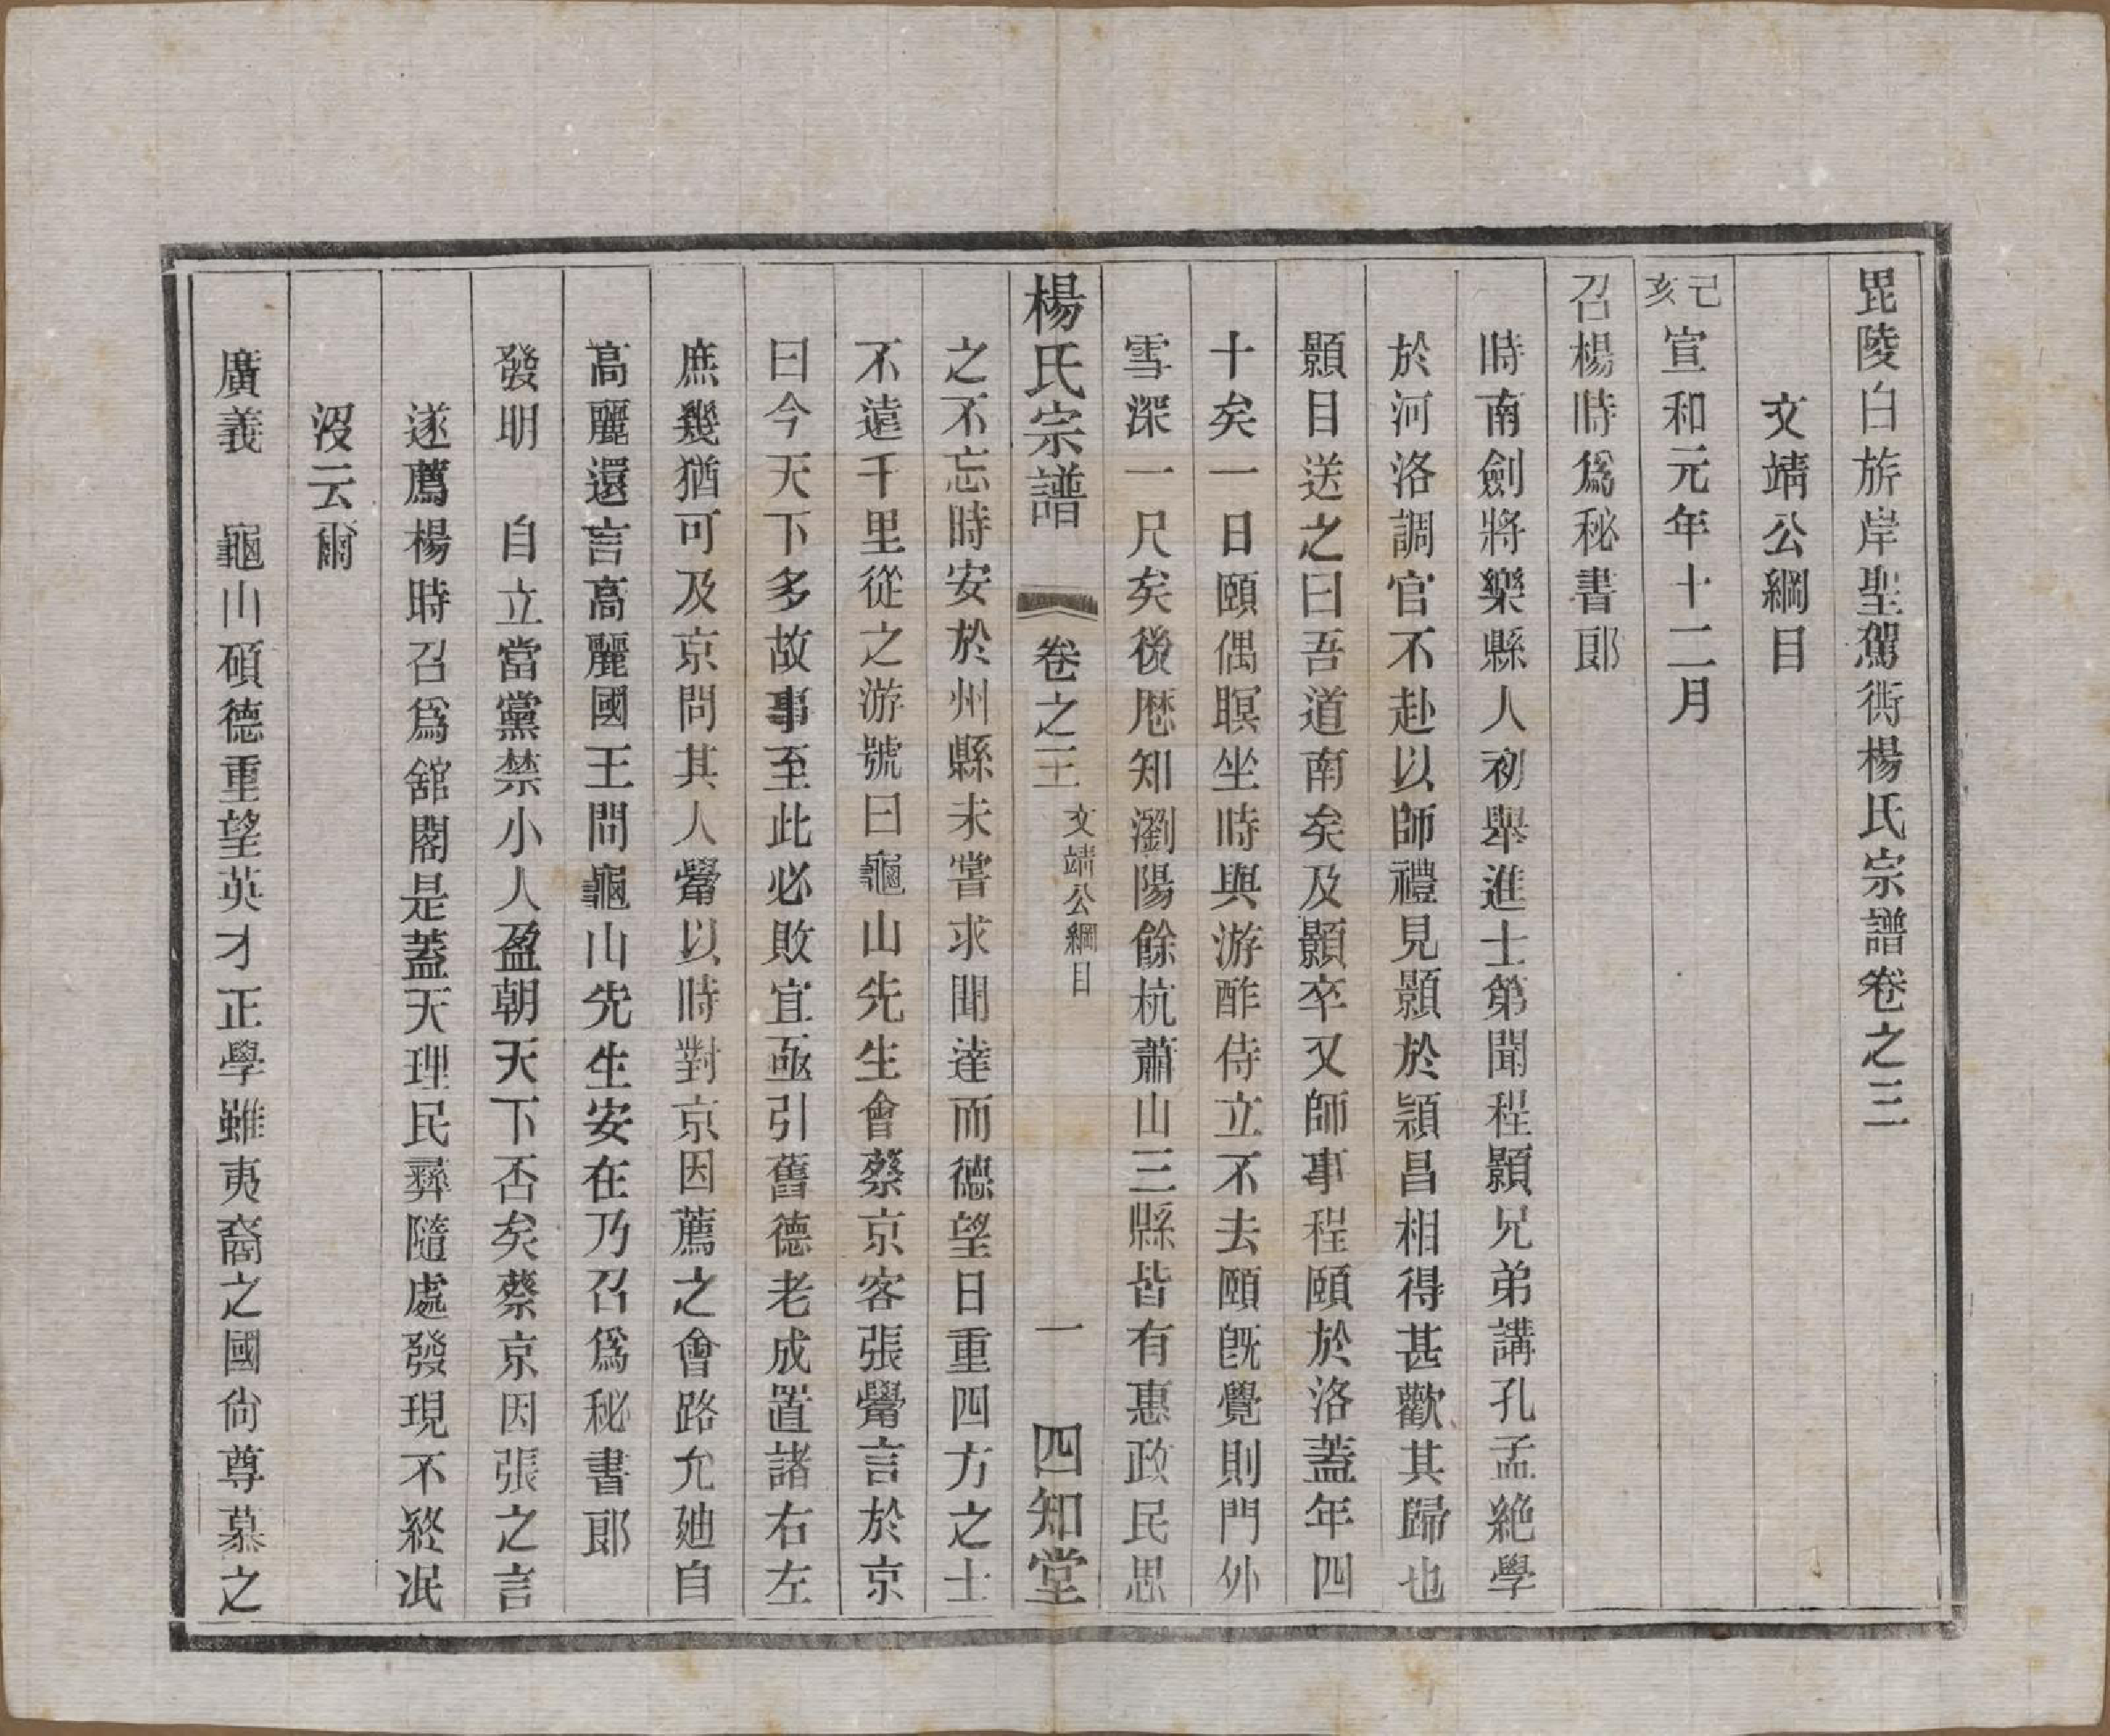 毘陵白旂岸聖駕衖楊氏宗譜卷之三
文靖公綱目
己亥宣和元年十二月
召楊時爲秘書郎
時南劍將樂縣人初舉進士第聞程顥兄弟講孔孟絶學
於河洛調官不赴以師禮見顥於潁昌相得甚歡其歸也
顥目送之曰吾道南矣及顥卒又師事程頤於洛蓋年四
十矣一日頤偶瞑坐時與游酢侍立不去頤旣覺則門外
雪深一尺矣後厯知瀏陽餘杭蕭山三縣皆有惠政民思
楊氏宗譜 卷之三 文靖公綱目 一 四知堂
之不忘時安於州縣未嘗求聞達而德望日重四方之士
不遠千里從之游號曰龜山先生會蔡京客張觷言於京
曰今天下多故事至此必敗宜亟引舊德老成置諸右左
庶幾猶可及京問其人觷以時對京因薦之會路允廸自
高麗還言高麗國王問龜山先生安在乃召爲秘書郎
發明 自立當黨禁小人盈朝天下否矣蔡京因張之言
遂薦楊時召爲舘閣是蓋天理民彞隨處發現不終泯
沒云爾
廣義 龜山碩德重望英才正學雖夷裔之國尙尊慕之